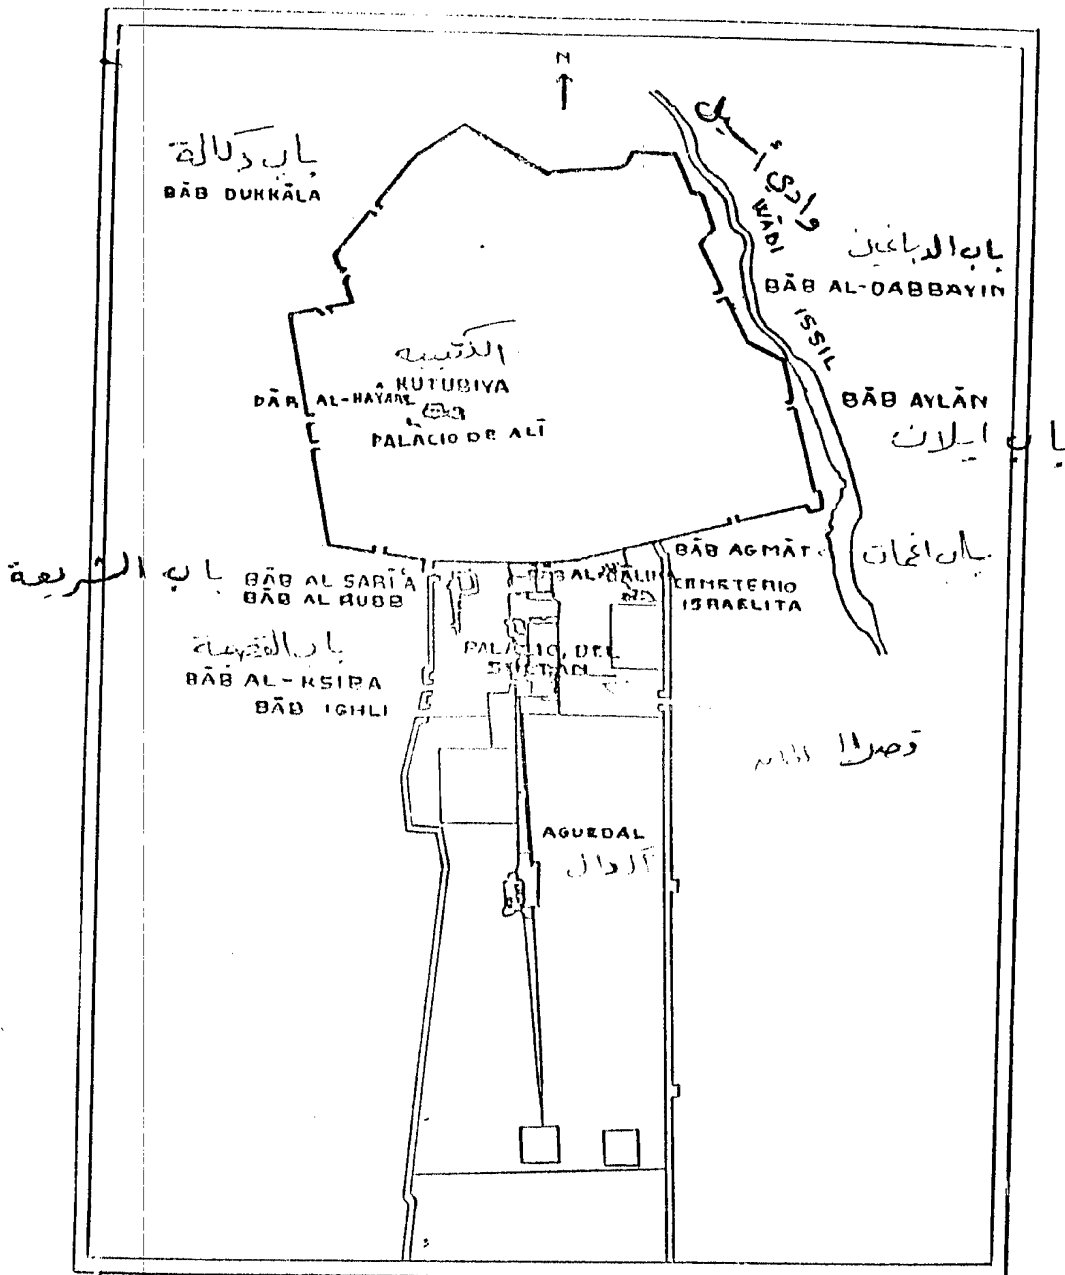 N
وادي أسيل
باب دكالة
BĀB DUKKĀLA
WĀDI
ISSIL
باب الدباغين
BĀB AL-DABBAYIN
الكتبيه
KUTUBIYA
DĀR AL-HAYARE
PALACIO DE ALĪ
BĀB AYLĀN
باب ايلان
BĀB AGMĀT
باب اغمات
باب الشريعة
BĀB AL SARĪ'A
BĀB AL RUBB
CEMETERIO
ISRAELITA
باب القصيبة
BĀB AL-KSIBA
BĀB IGHLI
PALACIO DEL
SULTAN
AGUEDAL
آكدال